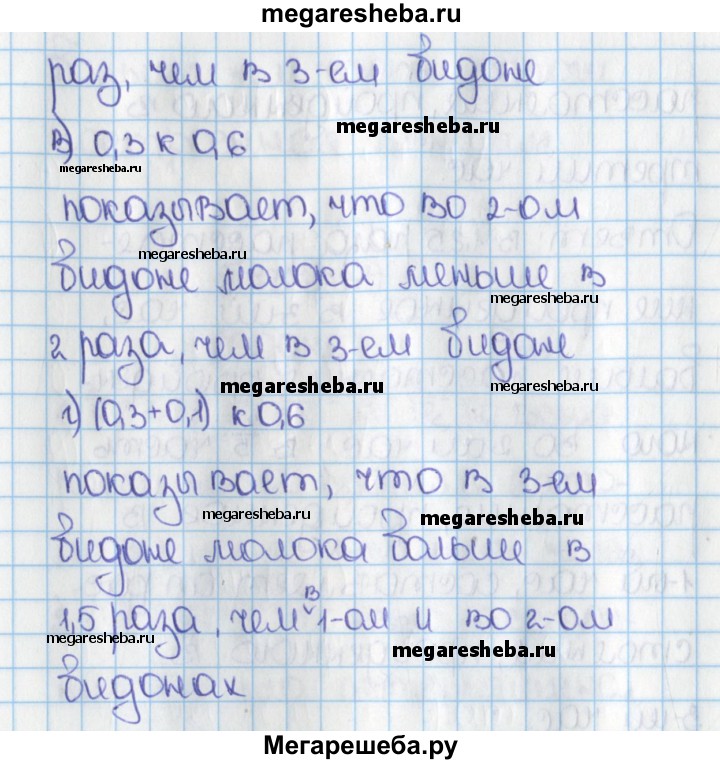 megaresheba.ru
раз, чем в 3-ем бидоне
megaresheba.ru
в) 0,3 к 0,6
megaresheba.ru
показывает, что во 2-ом
megaresheba.ru
бидоне молока меньше в
megaresheba.ru
2 раза, чем в 3-ем бидоне
megaresheba.ru
megaresheba.ru
г) (0,3+0,1) к 0,6
показывает, что в 3-ем
megaresheba.ru
megaresheba.ru
бидоне молока больше в
1,5 раза, чем в 1-ом и во 2-ом
megaresheba.ru
megaresheba.ru
бидонах
Мегарешеба.ру